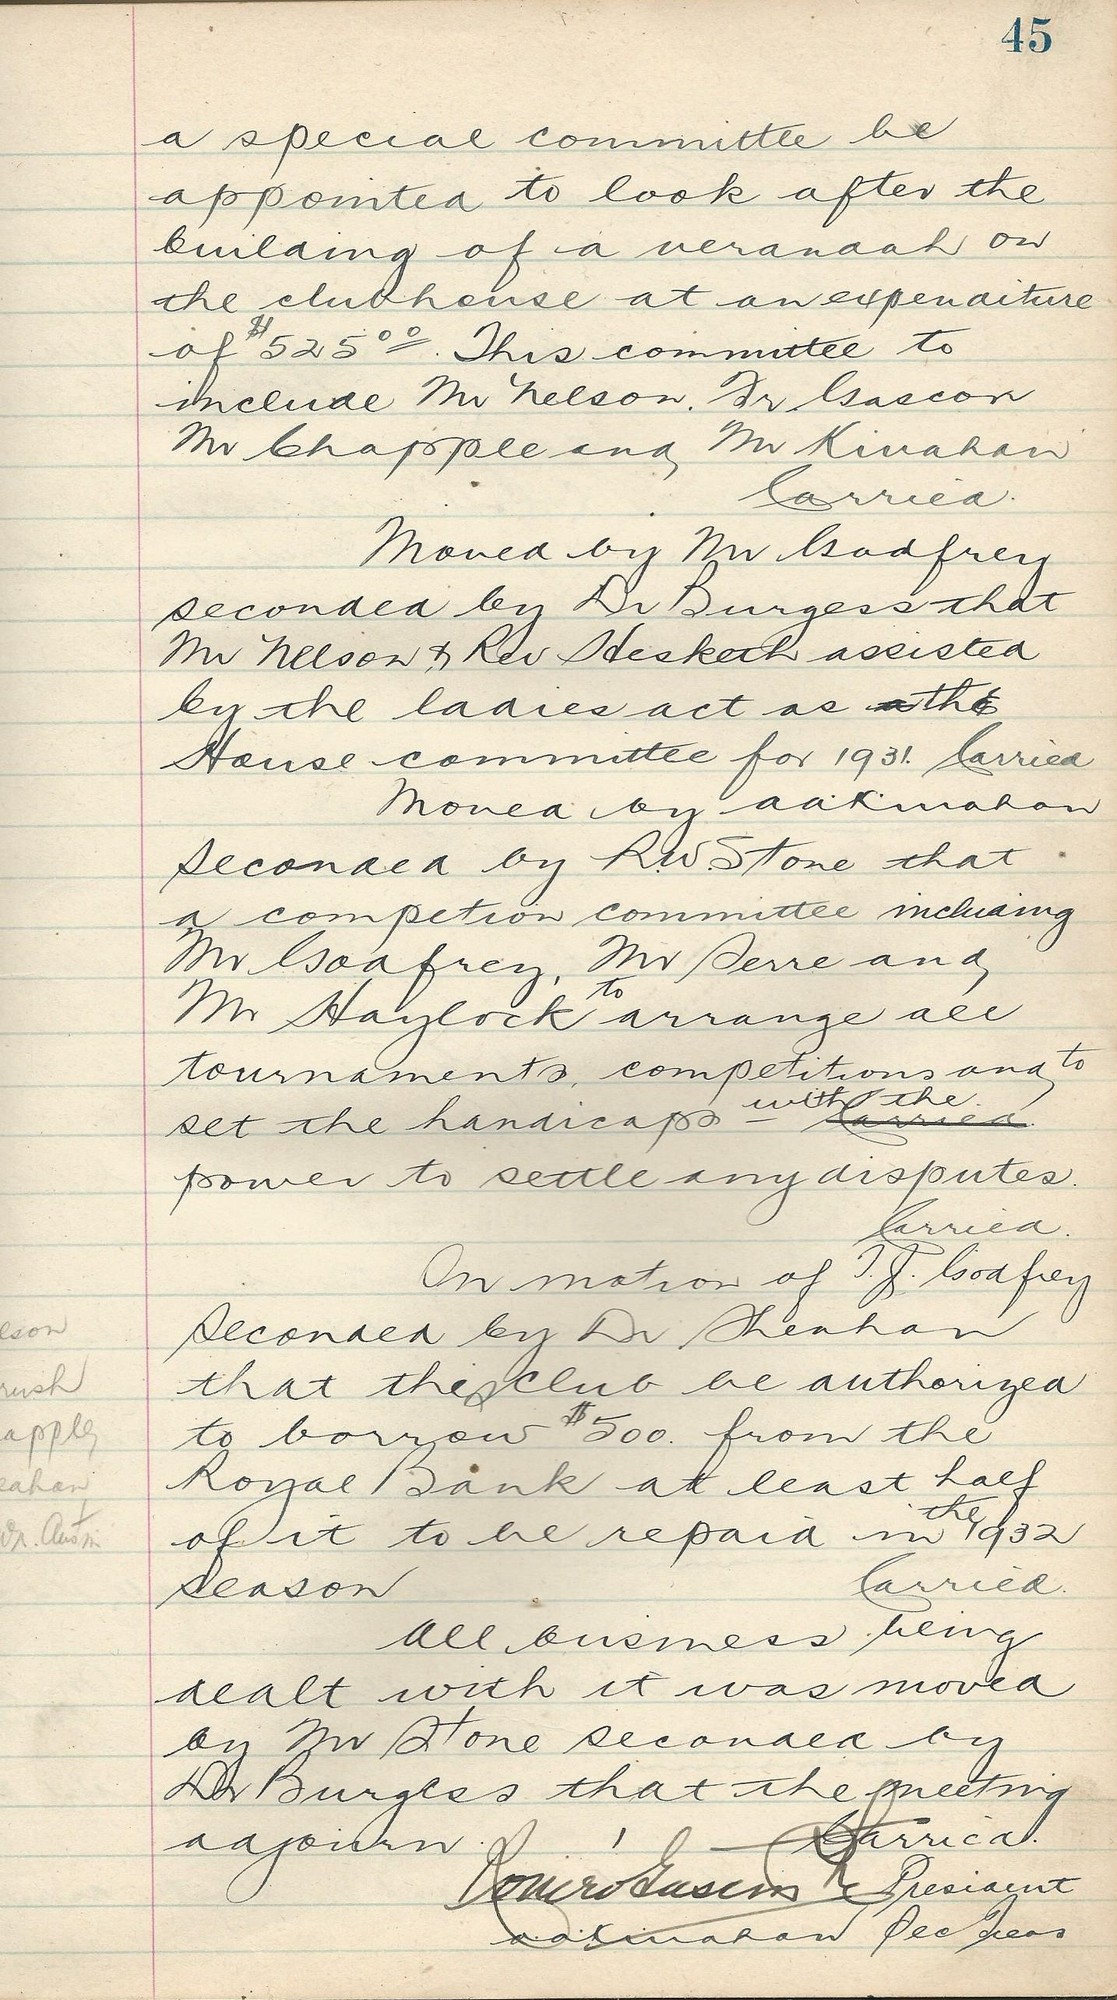 45
a special committee be
appointed to look after the
building of a verandah on
the clubhouse at an expenditure
of $525⁰⁰. This committee to
include Mr Nelson. Dr Gascon
Mr Chapple and Mr Kinahan
Carried.
Moved by Mr Godfrey
seconded by Dr Burgess that
Mr Nelson & Rev Hesketh assisted
by the ladies act as a the
House committee for 1931. Carried
Moved by AAKinahan
Seconded by R.W. Stone that
a competion committee including
Mr Godfrey, Mr Serre and
Mr Haylock to arrange all
tournaments, competitions and to
set the handicaps – Carried with the
power to settle any disputes.
Carried.
On motion of T.J. Godfrey
Seconded by Dr Shenhan
that the club be authorized
to borrow $500. from the
Royal Bank at least half
of it to be repaid in the 1932
Season Carried.
All business being
dealt with it was moved
by Mr Stone seconded by
Dr Burgess that the meeting
adjourn. Carried.
President
AAKinahan Sec Treas
elson
rush
apple
nahan
Dr. Austin